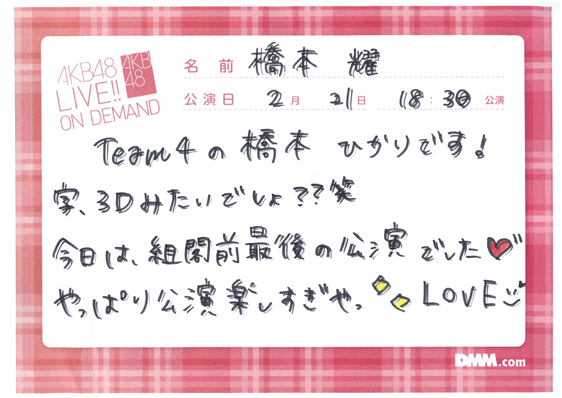 AKB48
LIVE!!
ON DEMAND
AKB
48
名前 橋本 耀
公演日 2月 21日 18:30 公演
Team4の橋本 ひかりです!
字、3Dみたいでしょ??笑
今日は、組閣前最後の公演でした
やっぱり公演楽しすぎやっ LOVE
DMM.com